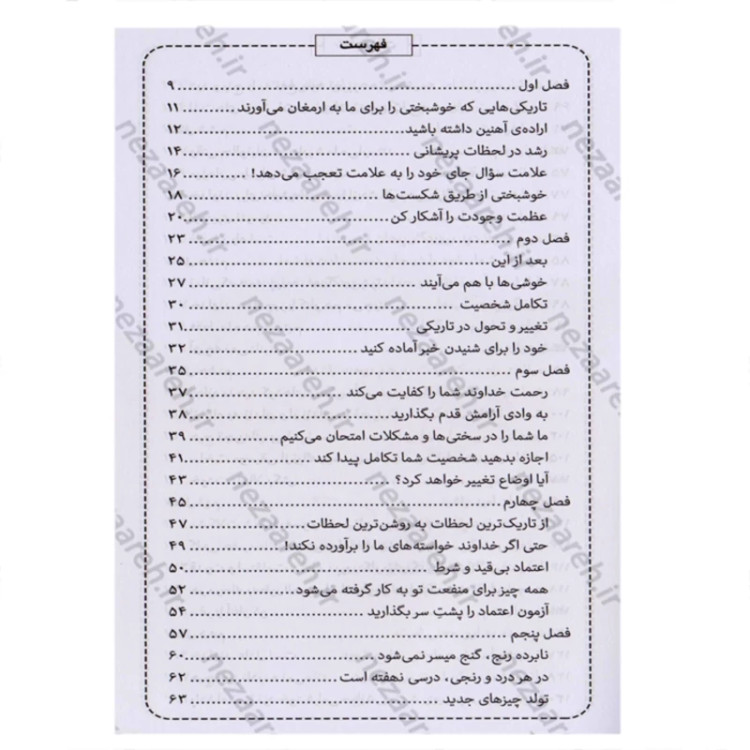 فهرست
فصل اول ........ ۹
تاریکی‌هایی که خوشبختی را برای ما به ارمغان می‌آورند ........ ۱۱
اراده‌ی آهنین داشته باشید ........ ۱۲
رشد در لحظات پریشانی ........ ۱۴
علامت سؤال جای خود را به علامت تعجب می‌دهد! ........ ۱۶
خوشبختی از طریق شکست‌ها ........ ۱۸
عظمت وجودت را آشکار کن ........ ۲۰
فصل دوم ........ ۲۳
بعد از این ........ ۲۵
خوشی‌ها با هم می‌آیند ........ ۲۷
تکامل شخصیت ........ ۳۰
تغییر و تحول در تاریکی ........ ۳۱
خود را برای شنیدن خبر آماده کنید ........ ۳۲
فصل سوم ........ ۳۵
رحمت خداوند شما را کفایت می‌کند ........ ۳۷
به وادی آرامش قدم بگذارید ........ ۳۸
ما شما را در سختی‌ها و مشکلات امتحان می‌کنیم ........ ۳۹
اجازه بدهید شخصیت شما تکامل پیدا کند ........ ۴۱
آیا اوضاع تغییر خواهد کرد؟ ........ ۴۳
فصل چهارم ........ ۴۵
از تاریک‌ترین لحظات به روشن‌ترین لحظات ........ ۴۷
حتی اگر خداوند خواسته‌های ما را برآورده نکند! ........ ۴۹
اعتماد بی‌قید و شرط ........ ۵۰
همه چیز برای منفعت تو به کار گرفته می‌شود ........ ۵۲
آزمون اعتماد را پشتِ سر بگذارید ........ ۵۴
فصل پنجم ........ ۵۷
نابرده رنج، گنج میسر نمی‌شود ........ ۶۰
در هر درد و رنجی، درسی نهفته است ........ ۶۲
تولد چیزهای جدید ........ ۶۳
nezaareh.ir